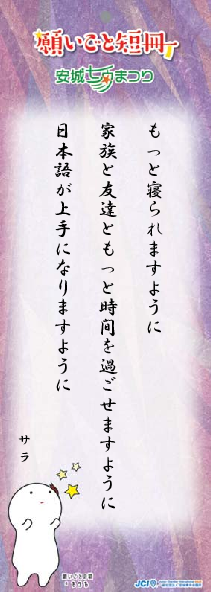 願いごと短冊
安城七夕まつり
もっと寝られますように
家族と友達ともっと時間を過ごせますように
日本語が上手になりますように
サラ
JCI